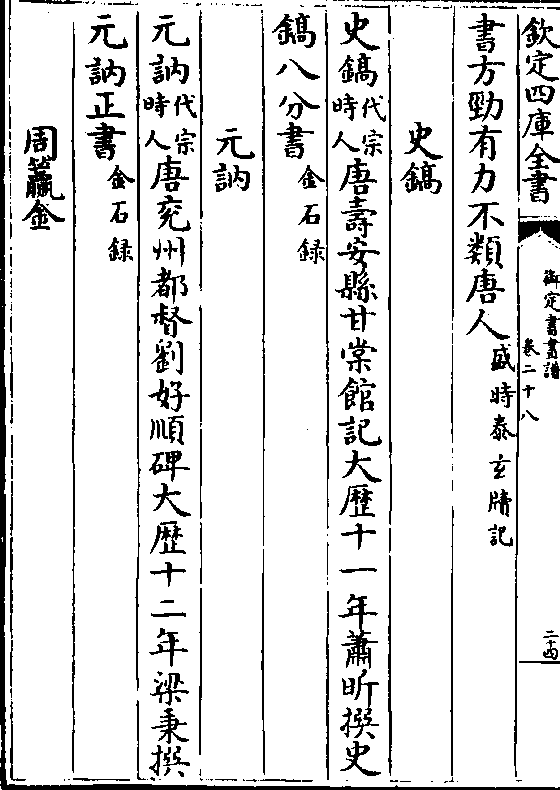 欽定四庫全書
御定書畫譜
卷二十八
二十四
書方勁有力不類唐人盛時泰玄牘記
史鎬
史鎬代宗時人唐壽安縣甘棠館記大歷十一年蕭昕撰史
鎬八分書金石録
元訥
元訥代宗時人唐兖州都督劉好順碑大歷十二年梁秉撰
元訥正書金石録
周籝金